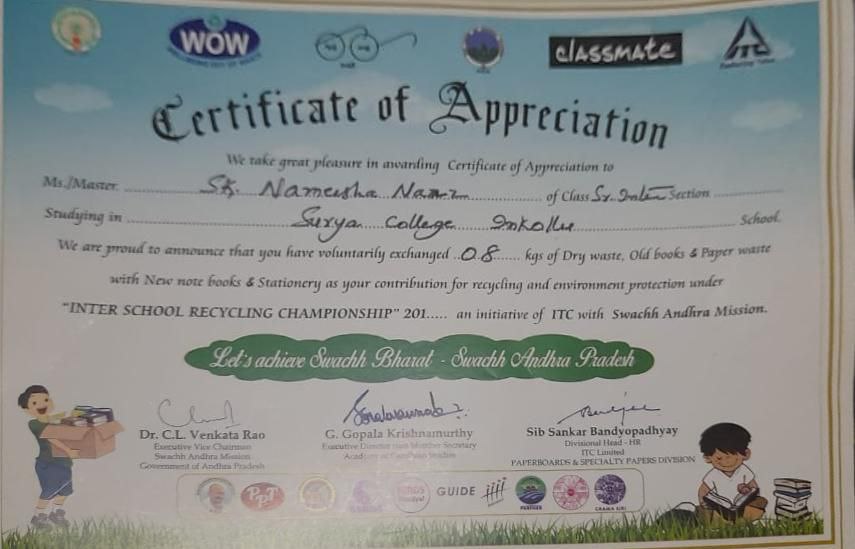 WOW
CLASSMATE
ITC
Certificate of Appreciation
We take great pleasure in awarding Certificate of Appreciation to
Ms./Master. Sk. Nameesha of Class Sr. Inter Section
Studying in Surya College Inkollu School.
We are proud to announce that you have voluntarily exchanged 08 kgs of Dry waste, Old books & Paper waste
with New note books & Stationery as your contribution for recycling and environment protection under
"INTER SCHOOL RECYCLING CHAMPIONSHIP" 201..... an initiative of ITC with Swachh Andhra Mission.
Let's achieve Swachh Bharat - Swachh Andhra Pradesh
Dr. C.L. Venkata Rao
Executive Vice Chairman
Swachh Andhra Mission
Government of Andhra Pradesh
G. Gopala Krishnamurthy
Executive Director cum Member Secretary
Academy of Gandhian Studies
Sib Sankar Bandyopadhyay
Divisional Head - HR
ITC Limited
PAPERBOARDS & SPECIALTY PAPERS DIVISION
PPT
GUIDE
GRAMA SIRI